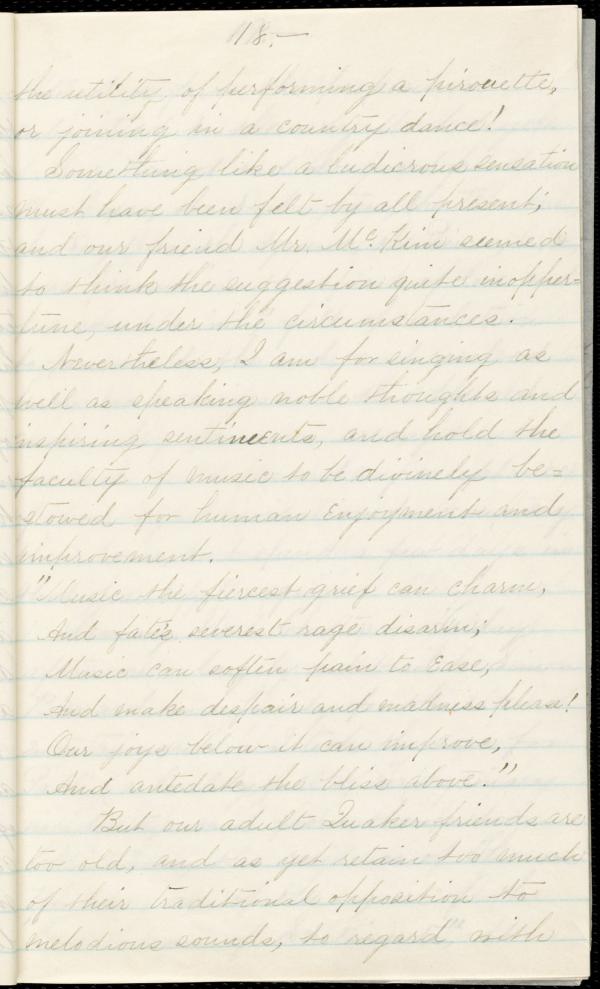 18.—
the utility of performing a pirouette,
or joining in a country dance!
Something like a ludicrous sensation
must have been felt by all present;
and our friend Mr. McKim seemed
to think the suggestion quite inopper=
tune, under the circumstances.
Nevertheless, I am for singing as
well as speaking noble thoughts and
inspiring sentiments, and hold the
faculty of music to be divinely be=
stowed for human enjoyment and
improvement.
"Music the fiercest grief can charm,
And fate's severest rage disarm;
Music can soften pain to ease,
And make despair and madness please!
Our joys below it can improve,
And antedate the bliss above."
But our adult Quaker friends are
too old, and as yet retain too much
of their traditional opposition to
melodious sounds, to regard with